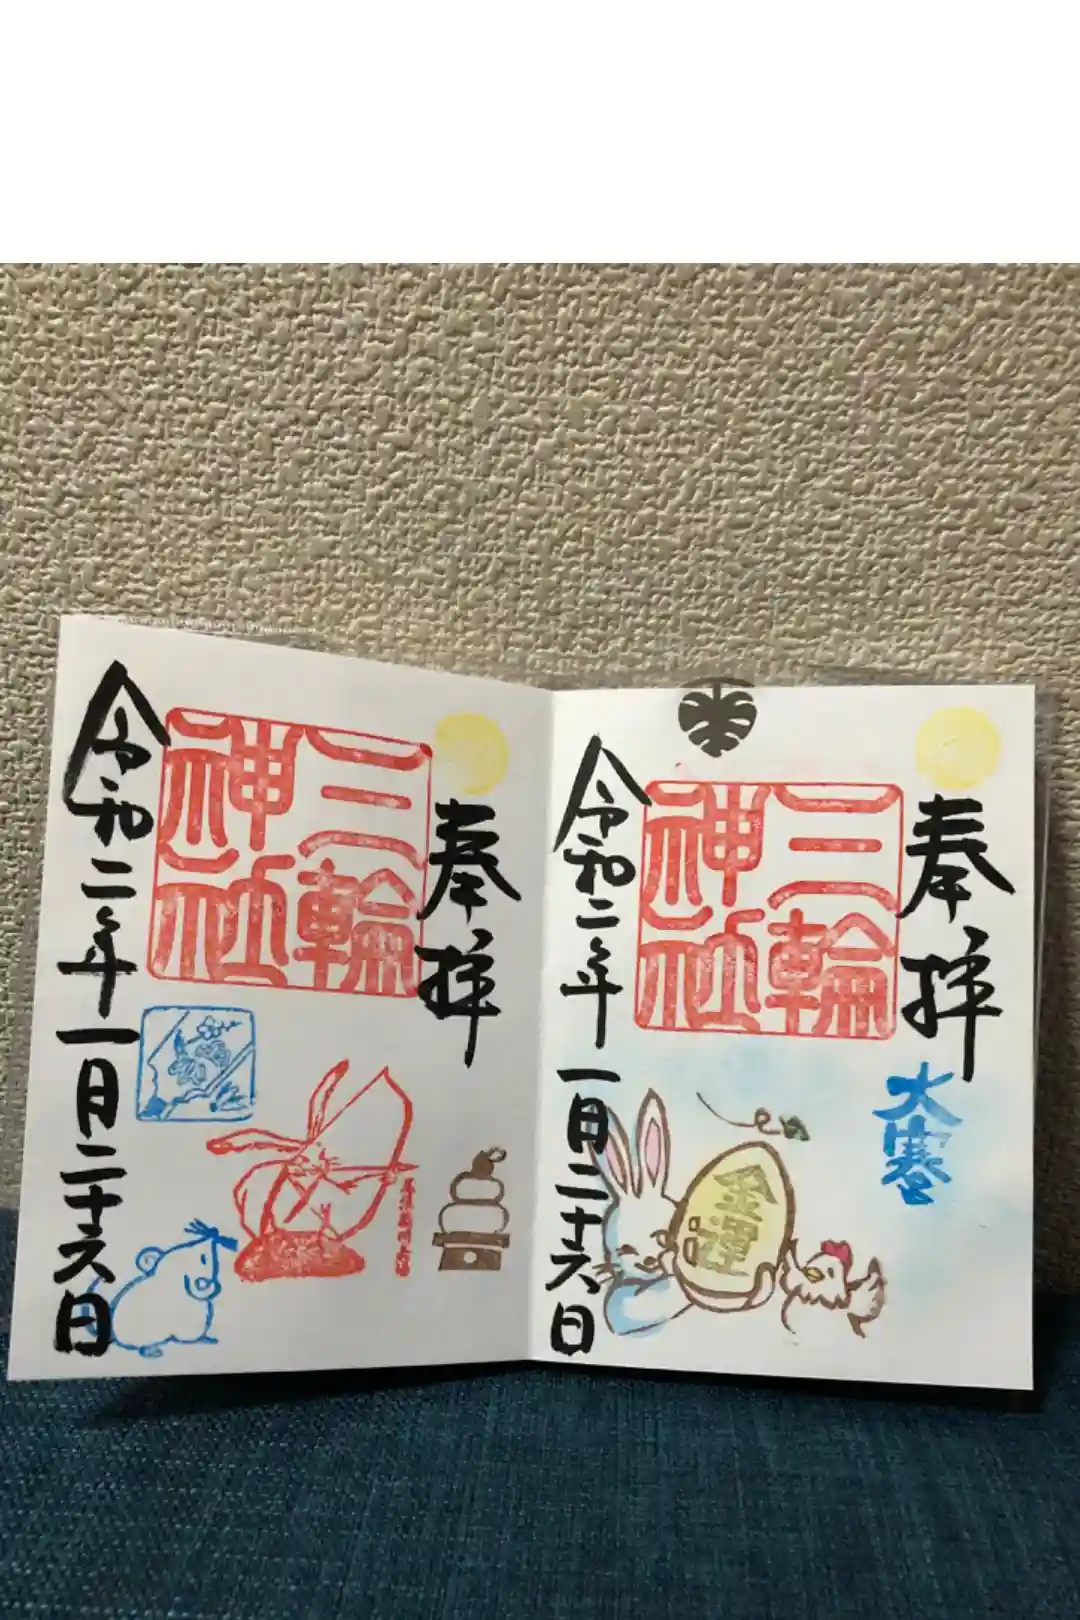 奉拝
三輪
神社
令和二年一月二十六日
奉拝
大寒
三輪
神社
金運
令和二年一月二十六日